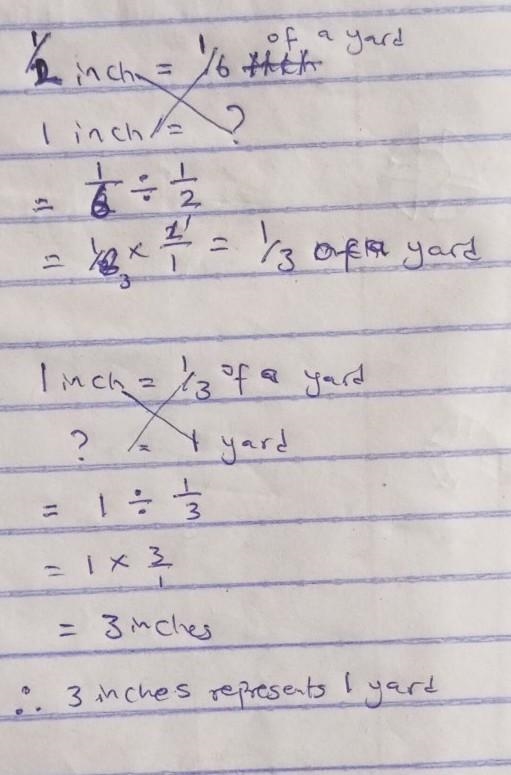 1/2 inch = 1/6 of a yard
1 inch = ?
= 1/6 ÷ 1/2
= 1/6 3 × 2 1/1 = 1/3 yard
1 inch = 1/3 of a yard
? = 1 yard
= 1 ÷ 1/3
= 1 × 3/1
= 3 inches
∴ 3 inches represents 1 yard